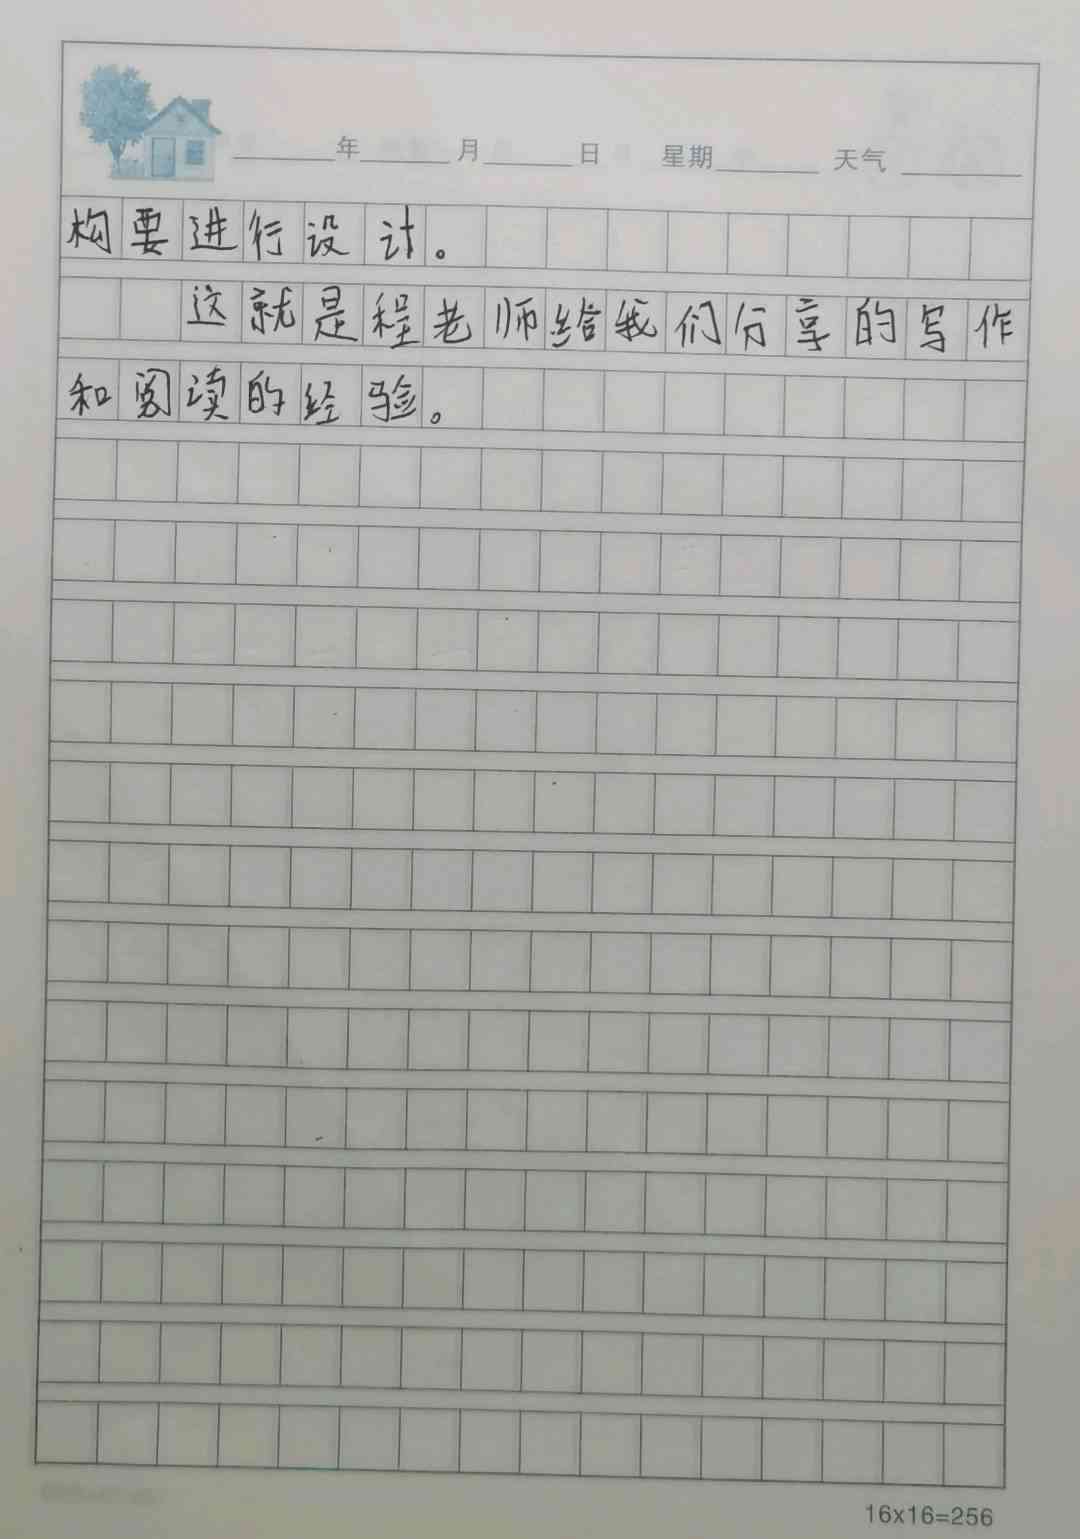 年 月 日 星期 天气
构要进行设计。
这就是程老师给我们分享的写作
和阅读的经验。
16x16=256